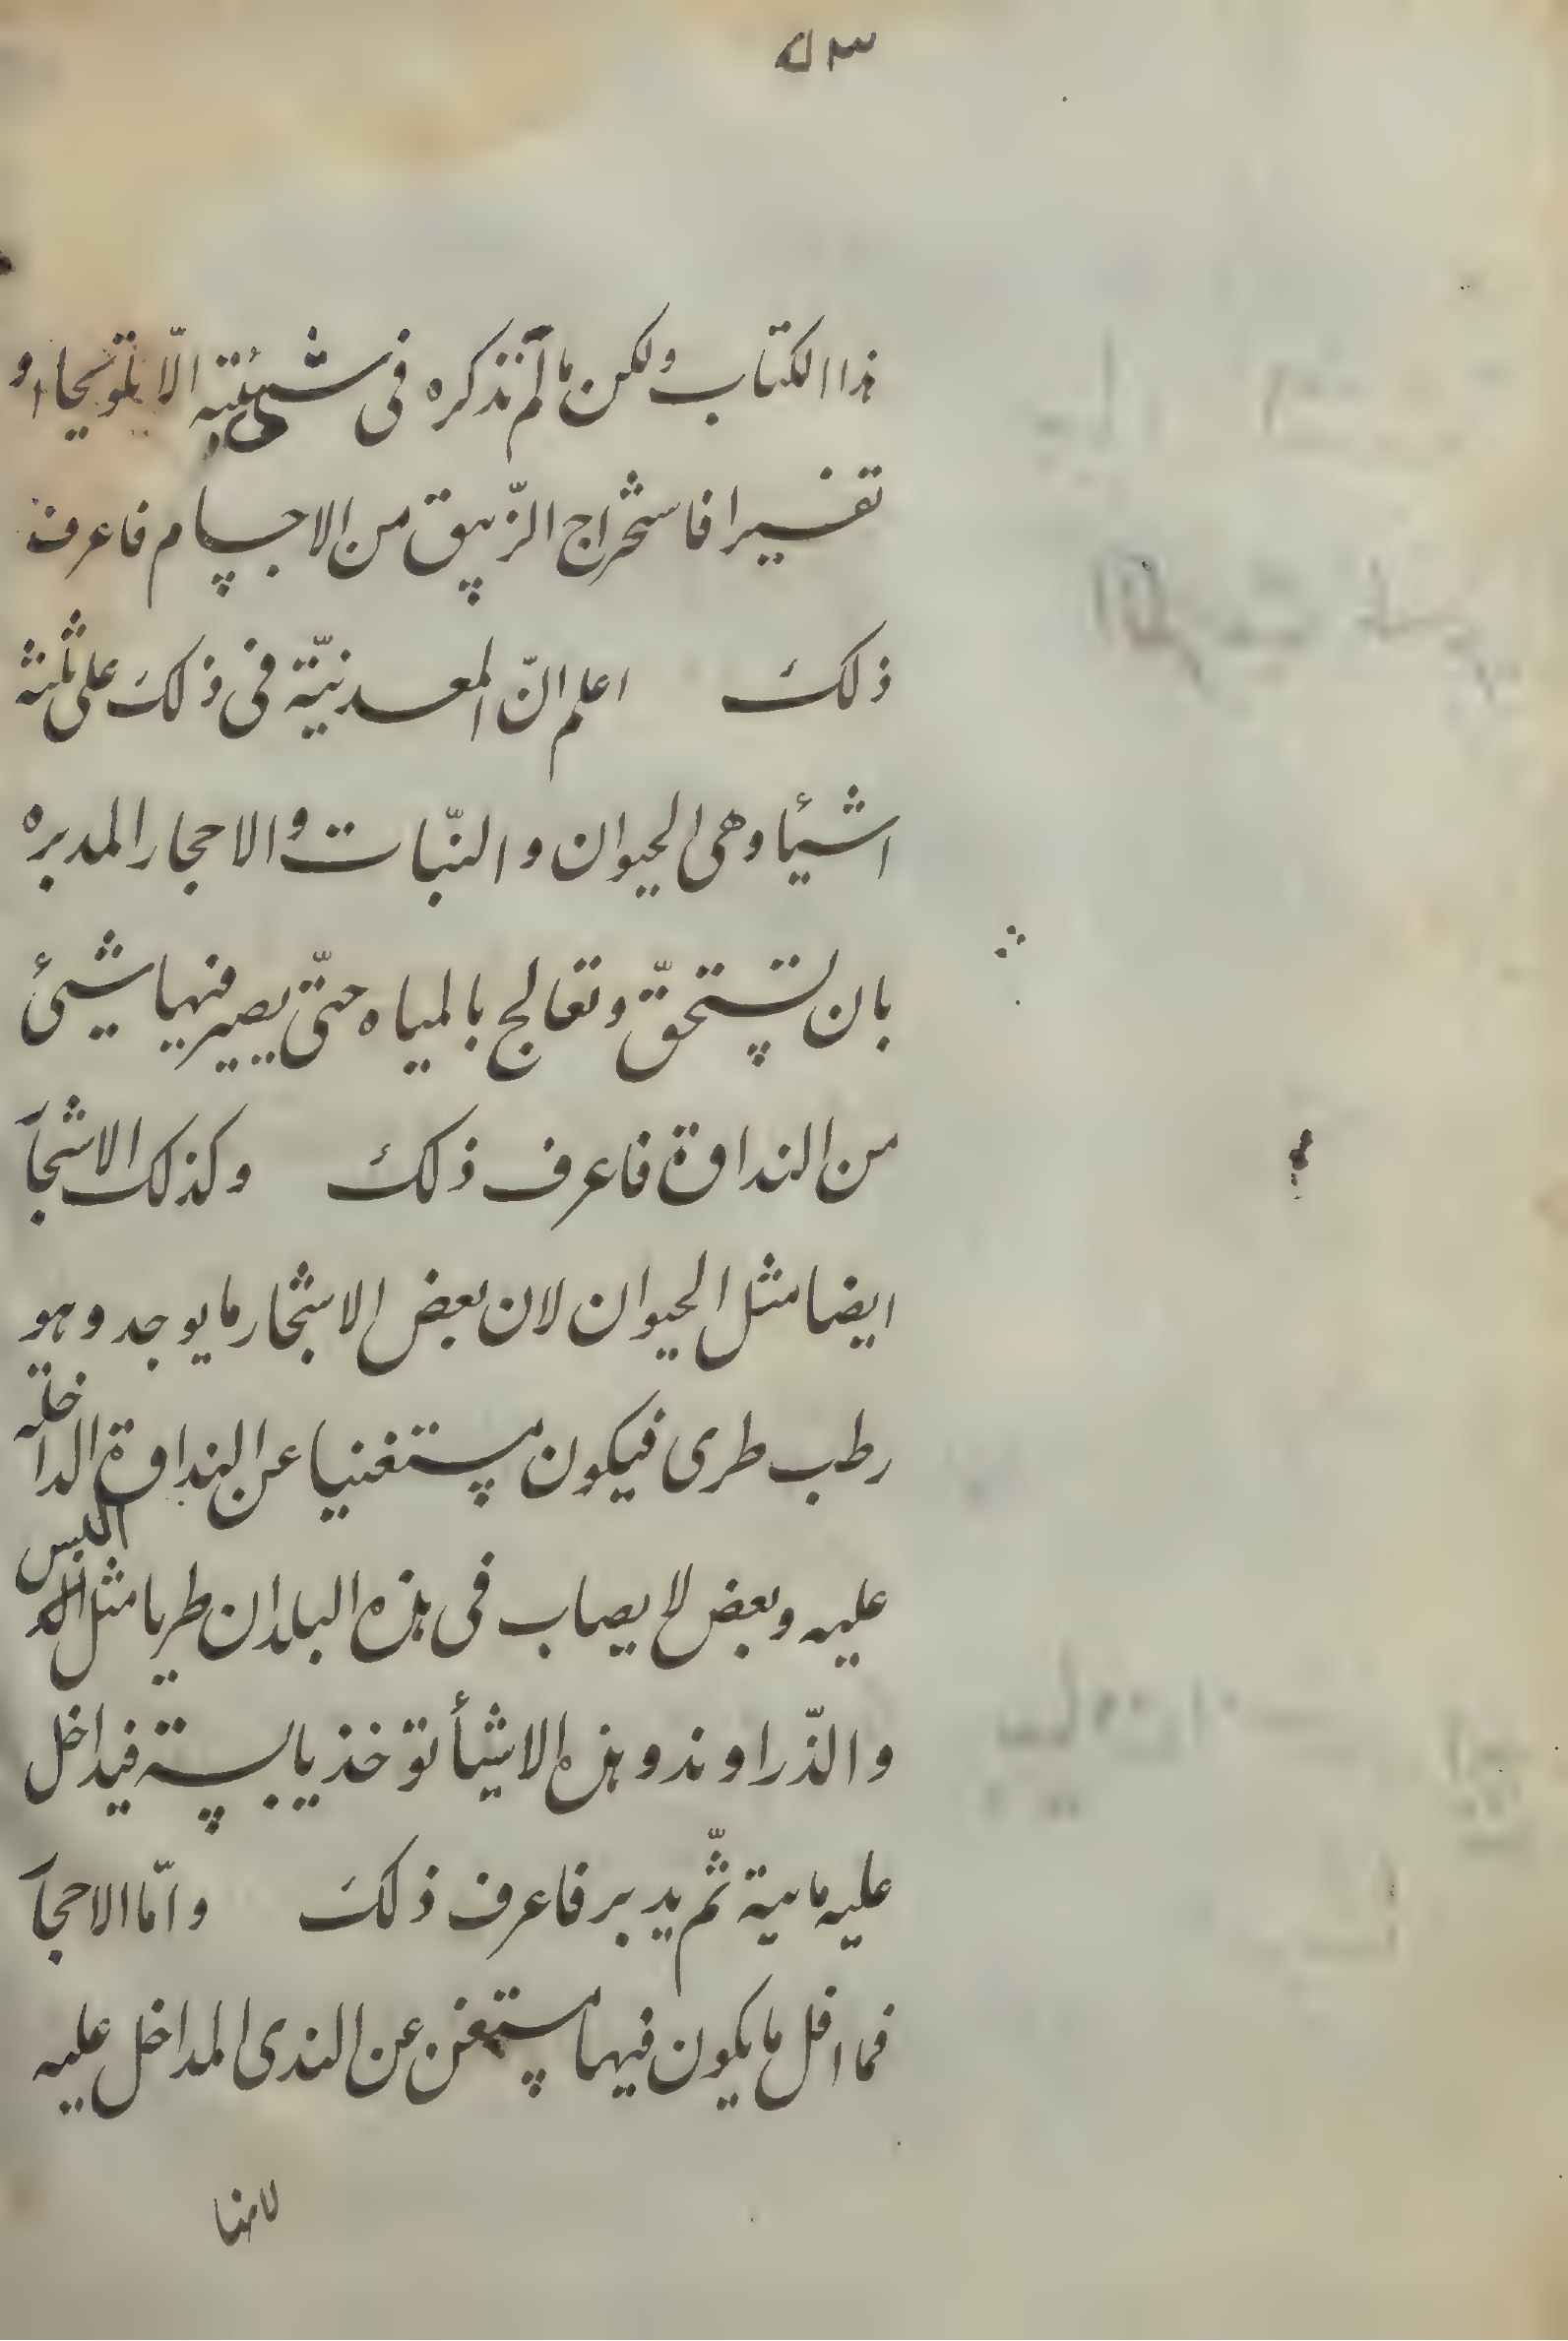 هذا الكتاب ولكن ما لم نذكره فى شيئيته الّا تلويحا او
تفسيرا فاستخراج الزّيبق من الاجسام فاعرف
ذلك اعلم انّ المعدنيّة فى ذلك على ثلثة
اشئا وهى الحيوان والنّبات والاحجار المدبره
بان تستحقّ وتعالج بالمياه حتّى يصير فيها شىٔ
من النداوة فاعرف ذلك وكذلك الاشجآ
ايضا مثل الحيوان لان بعض الاشجار ما يوجد وهو
رطب طرى فيكون مستغنيا عن النداوة الداخلة
عليه وبعض لا يصاب فى هذه البلدان طريا مثل
والذّراوند وهذه الاشيأ تؤخذ يابسة فيداخل
عليه مايية ثّم يدبر فاعرف ذلك وامّا الاحجآ
فما اقل ما يكون فيها مستغن عن الندى المداخل عليه
لانها